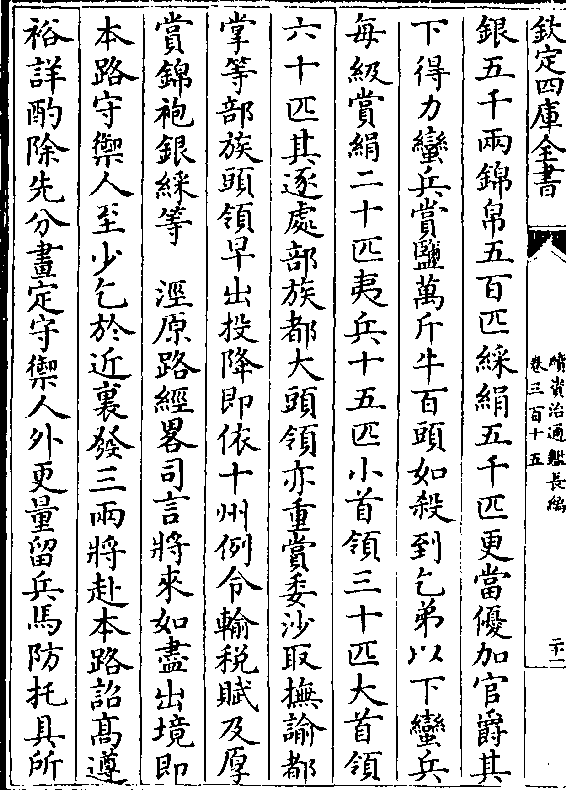 欽定四庫全書
續資治通鑑長編
卷三百十五
二十一
銀五千兩錦帛五百匹綵絹五千匹更當優加官爵其
下得力蠻兵賞鹽萬斤牛百頭如殺到乞弟以下蠻兵
每級賞絹二十匹夷兵十五匹小首領三十匹大首領
六十匹其逐處部族都大頭領亦重賞委沙取撫諭都
掌等部族頭領早出投降即依十州例令輸税賦及厚
賞錦袍銀綵等　涇原路經畧司言將來如盡出境即
本路守禦人至少乞於近裏發三兩將赴本路詔髙遵
裕詳酌除先分畫定守禦人外更量留兵馬防托具所